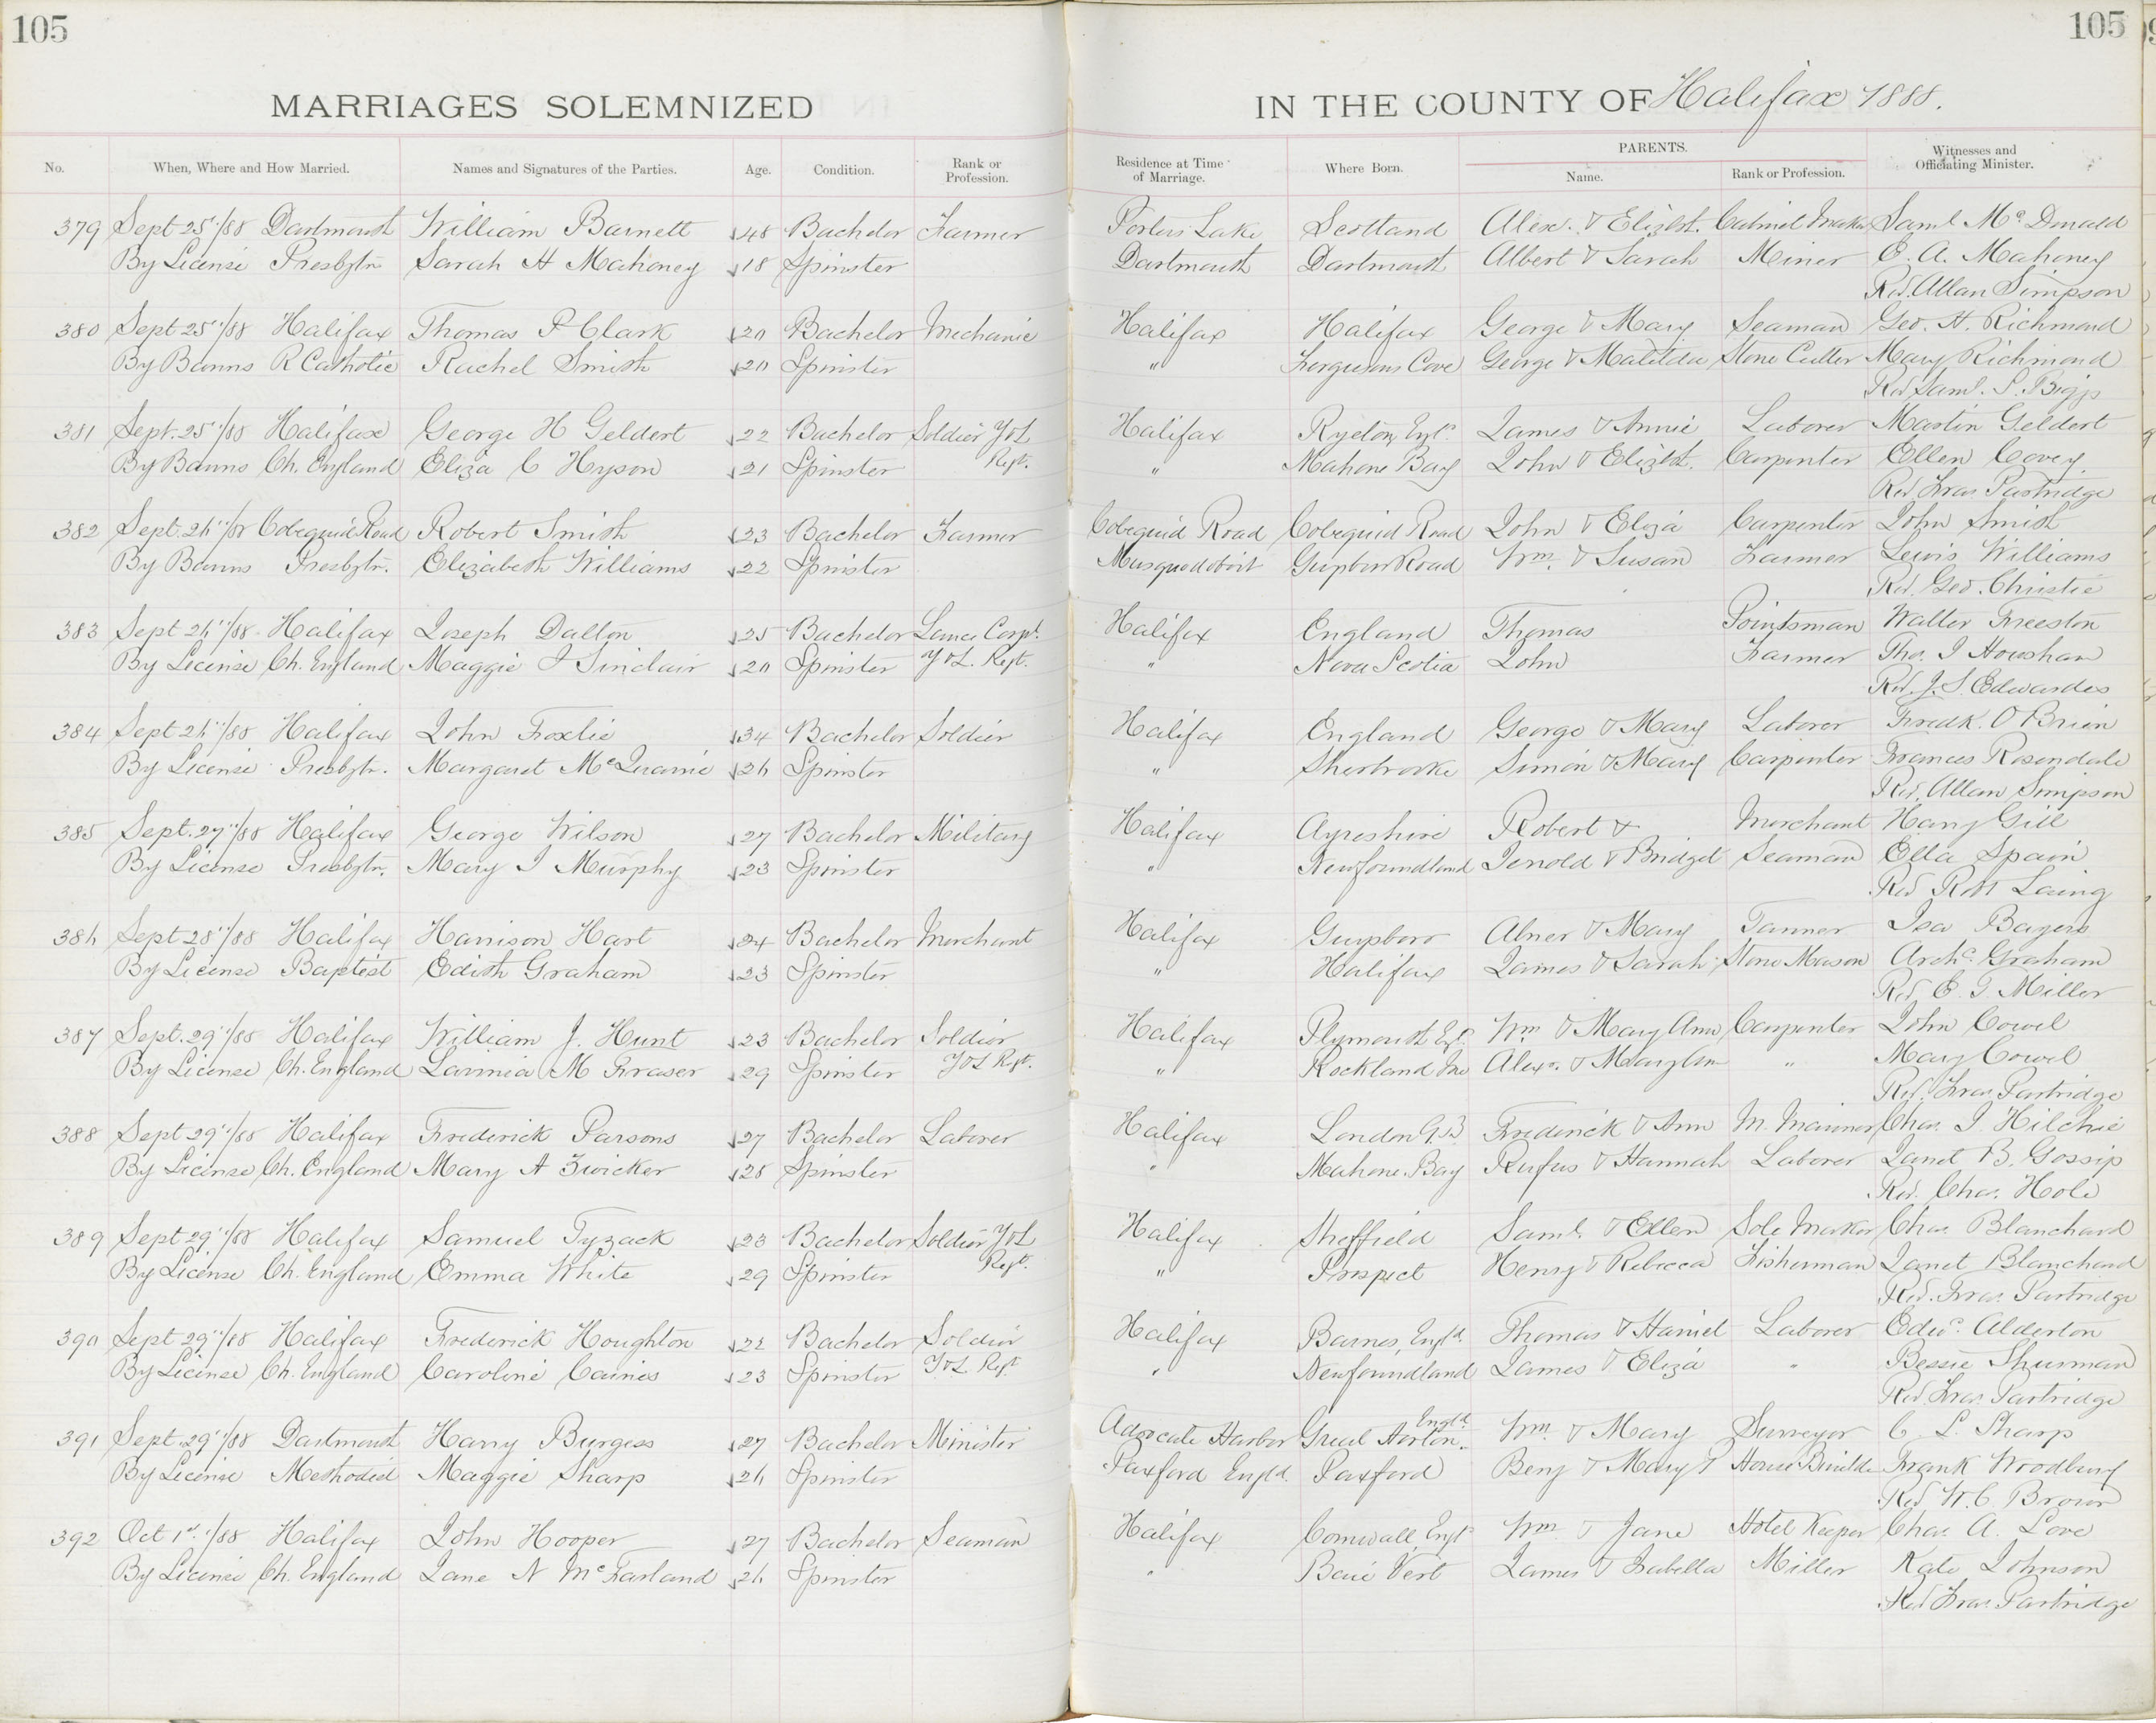 105
105
MARRIAGES SOLEMNIZED
IN THE COUNTY OF Halifax 1888.
No. When, Where and How Married. Names and Signatures of the Parties. Age. Condition. Rank or Profession. Residence at Time of Marriage. Where Born. PARENTS. Name. Rank or Profession. Witnesses and Officiating Minister.
379 Sept 25"/88 Dartmouth William Barnett 48 Bachelor Farmer Porters Lake Scotland Alex. & Elizbt. Cabinet Maker Saml McDonald
By License Presbytn Sarah H Mahoney 18 Spinster Dartmouth Dartmouth Albert & Sarah Miner E. A. Mahoney
Rev. Allan Simpson
380 Sept 25"/88 Halifax Thomas P Clark 20 Bachelor Mechanic Halifax Halifax George & Mary Seaman Geo. H. Richmond
By Banns R Catholic Rachel Smith 20 Spinster " Fergusons Cove George & Matilda Stone Cutter Mary Richmond
Rev Saml. P. Biggs
381 Sept. 25"/88 Halifax George H Geldert 22 Bachelor Soldier Y&L Halifax Ryeton, Engd. James & Annie Laborer Martin Geldert
By Banns Ch. England Eliza C Hyson 21 Spinster Regt. " Mahone Bay John & Elizbt. Carpenter Ellen Covey
Rev. Fras Partridge
382 Sept. 26"/88 Cobequid Road Robert Smith 23 Bachelor Farmer Cobequid Road Cobequid Road John & Eliza Carpenter John Smith
By Banns Presbytr. Elizabeth Williams 22 Spinster Musquodoboit Guysboro Road Wm. & Susan Farmer Lewis Williams
Rev. Geo. Christie
383 Sept 26"/88 Halifax Joseph Dalton 25 Bachelor Lance Corpl. Halifax England Thomas Pointsman Walter Freeston
By License Ch. England Maggie J Sinclair 20 Spinster Y&L. Regt. " Nova Scotia John Farmer Thos. J Houshan
Rev. J. S. Edwardes
384 Sept 26"/88 Halifax John Foxlie 34 Bachelor Soldier Halifax England George & Mary Laborer Fredk. O'Brien
By License Presbytr. Margaret McQuarrie 26 Spinster " Sherbrooke Simon & Mary Carpenter Frances Rosendale
Rev. Allan Simpson
385 Sept. 27"/88 Halifax George Wilson 27 Bachelor Military Halifax Ayreshire Robert & Merchant Harry Gill
By License Presbytn. Mary J Murphy 23 Spinster " Newfoundland Jerold & Bridget Seaman Ella Spain
Rev Robt Laing
386 Sept 28"/88 Halifax Harrison Hart 24 Bachelor Merchant Halifax Guysboro Abner & Mary Tanner Isa Bayers
By License Baptist Edith Graham 23 Spinster " Halifax James & Sarah Stone Mason Archd. Graham
Rev. E. J Miller
387 Sept. 29"/88 Halifax William J. Hunt 23 Bachelor Soldier Halifax Plymouth Engd. Wm & Mary Ann Carpenter John Cowel
By License Ch. England Lavinia M Fraser 29 Spinster Y&L Regt. " Rockland Me Alexr. & Mary Ann " Mary Cowel
Rev. Fras. Partridge
388 Sept 29"/88 Halifax Frederick Parsons 27 Bachelor Laborer Halifax London G.B Frederick & Ann M. Mariner Chas. J. Hilchie
By License Ch. England Mary A Zwicker 28 Spinster " Mahone Bay Rufus & Hannah Laborer Janet B. Gossip
Rev. Chas. Hole
389 Sept 29"/88 Halifax Samuel Tyzack 23 Bachelor Soldier Y&L Halifax Sheffield Saml. & Ellen Sole Maker Chas. Blanchard
By License Ch. England Emma White 29 Spinster Regt. " Prospect Henry & Rebecca Fisherman Janet Blanchard
Rev. Fras. Partridge
390 Sept 29"/88 Halifax Frederick Houghton 22 Bachelor Soldier Halifax Barnes, Engd. Thomas & Harriet Laborer Edwd. Alderton
By License Ch. England Caroline Caines 23 Spinster Y&L. Regt " Newfoundland James & Eliza " Bessie Shurman
Rev. Fras. Partridge
391 Sept. 29"/88 Dartmouth Harry Burgess 27 Bachelor Minister Advocate Harbor Great Horton. Engld. Wm. & Mary Surveyor C. L. Sharp
By License Methodist Maggie Sharp 26 Spinster Paxford Engld. Paxford Benj & Mary P House Builder Frank Woodbury
Rev. W. C. Brown
392 Oct 1st "/88 Halifax John Hooper 27 Bachelor Seaman Halifax Cornwall, Engd Wm. & Jane Hotel Keeper Chas. A. Love
By License Ch. England Jane N McFarland 26 Spinster " Baie Vert James & Isabella Miller Kate Johnson
Rev Fras. Partridge